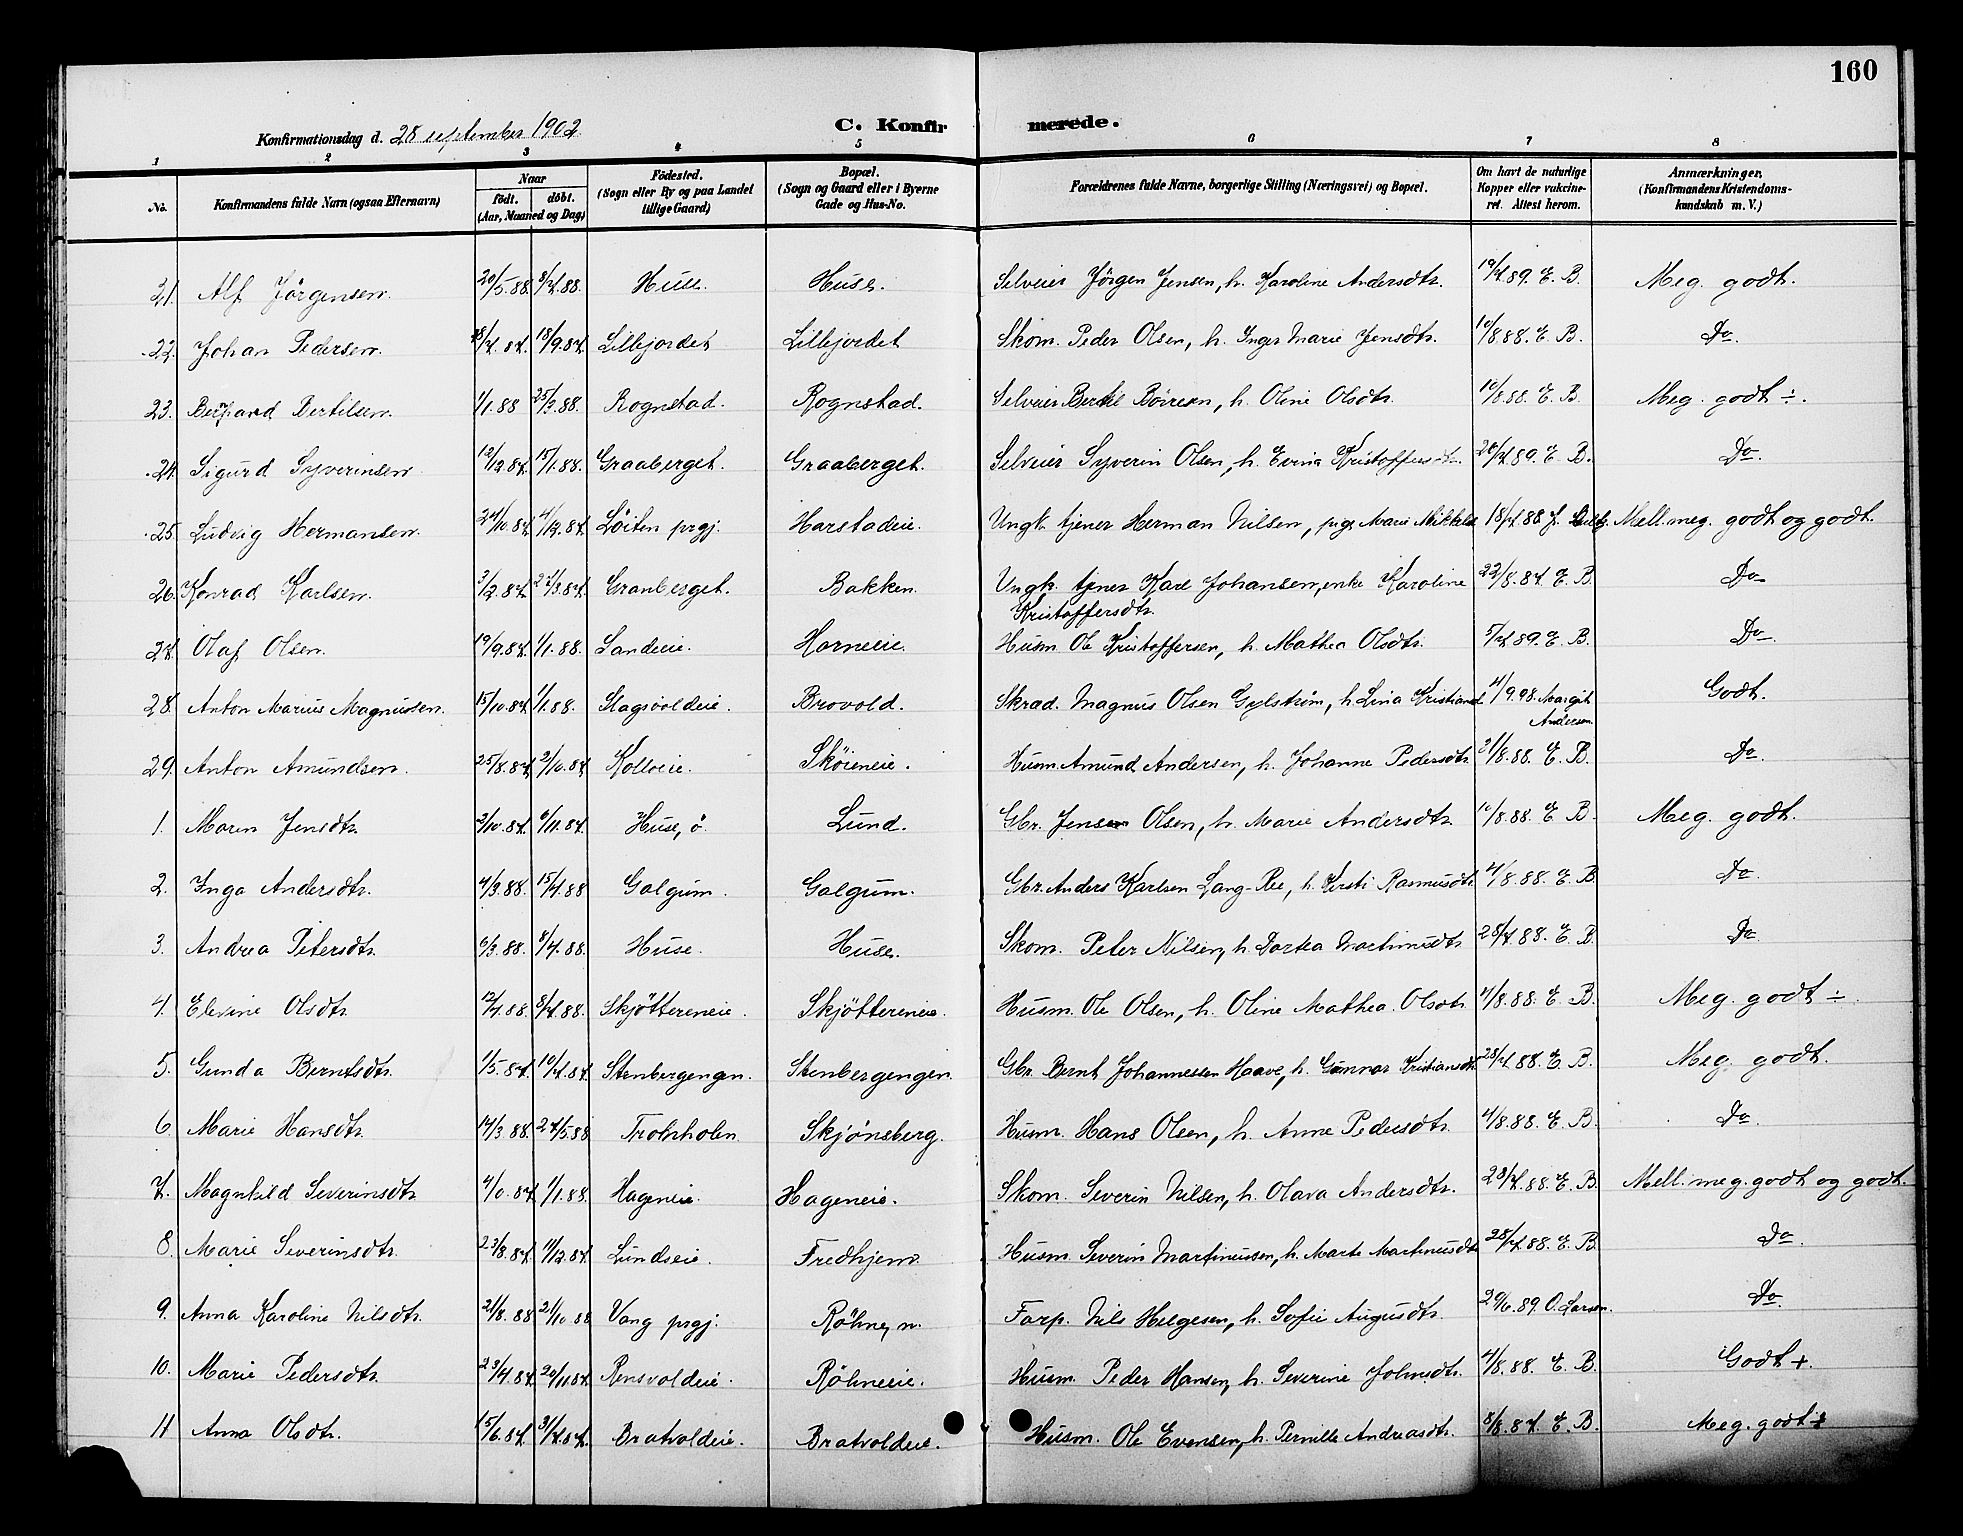 160
Konfirmationsdag d. 28 september 1902
C. Konfirmerede.
1 2 3 4 5 6 7 8
No. Konfirmandens fulde Navn (ogsaa Efternavn) Naar födt. döbt. (Aar, Maaned og Dag) Födested. (Sogn eller By og paa Landet tillige Gaard) Bopæl. (Sogn og Gaard eller i Byerne Gade og Hus-No. Forældrenes fulde Navne, borgerlige Stilling (Næringsvei) og Bopæl. Om havt de naturlige Kopper eller vaccineret. Attest herom. Anmærkninger, (Konfirmandens Kristendomskundskab m. V.)
21. Alf Jörgensen. 20/5.88. 8/7.88. Huse. Huse. Selveier Jörgen Jensen, h. Karoline Andersdtr. 19/7.89. E. B. Meg. godt.
22. Johan Pedersen. 18/9.87. Lillejordet Lillejordet Skom. Peder Olsen, h. Inger Marie Jensdtr. 10/8.88. E. B. Do.
23. Bertilsen. 1/1.88 25/3.88. Rognstad. Rognstad. Selveier Bertil h. Oline Olsdtr. 10/8.88. E. B. Meg. godt ÷.
24. Sigurd Syverinsen. 12/12.87. 15/1.88. Graaberget. Graaberget. Selveier Syverin Olsen, h. Evina 20/7.89. E. B. Do.
25. Ludvig Hermansen. 24/10.87. 4/12.87. Löiten prgj. Harstadeie. Ungk. tjener Herman Nilsen, pige Marie 18/7.88 Mell. meg. godt og godt.
26. Konrad Karlsen. 3/2.87. 27/3.87. Granberget. Bakken. Ungk. tjener Karl Johansen, enke Karoline Kristoffersdtr. 22/8.87. E. B. Do
27. Olaf Olsen. 19/9.87. 1/1.88. Sandeie. Horneeie. Husm. Ole Kristoffersen, h. Mathea Olsdtr. 5/7.89. E. B. Do
28. Anton Marius Magnussen. 15/10.87. 1/1.88. Slagsvoldeie. Brovold. Skræd. Magnus Olsen Gylstrøm, h. Lina 4/9.98. Margit Andersen Godt.
29. Anton Amundsen. 25/8.87. 2/10.87. Sköreneie. Husm. Amund Andersen, h. Johanne Pedersdtr. 31/8.88. E. B. Do
1. Maren Jensdtr. 2/10.87. 6/11.87. Huse, ö. Lund. Gbr. Olsen, h. Marie Andersdtr. 10/8.88. E. B. Meg. godt.
2. Inga Andersdtr. 4/3.88. 15/4.88 Galgum. Galgum. Gbr. Anders Karlsen Lang-Ree, h. Kersti Rasmusdtr. 4/8.88. E. B. Do.
3. Andrea Petersdtr. 6/3.88. 8/4.88. Huse. Huse. Skom. Peter Nilsen, h. Dortea 28/7.88. E. B. Do.
4. Elevine Olsdtr. 12/4.88. 8/7.88. Skjöttereneie. Skjöttereneie. Husm. Ole Olsen, h. Oline Mathea Olsdtr. 4/8.88. E. B. Meg. godt ÷.
5. Gunda Berntsdtr. 1/5.87. 10/7.87. Stenbergengen. Stenbergengen. Gbr. Bernt Johannessen Haave, h. Gunnar Kristiansdtr. 28/7.88. E. B. Meg. godt.
6. Marie Hansdtr. 14/3.88. 27/5.88 Skjönsberg. Husm. Hans Olsen, h. Anne Pedersdtr. 4/8.88. E. B. Do.
7. Magnhild Severinsdtr. 1/1.88. Hageneie. Hageneie. Skom. Severin Nilsen, h. Olava Andersdtr. 28/7.88. E. B. Mell. meg. godt og godt.
8. Marie Severinsdtr. 23/8.87. 4/12.87. Lundseie. Fredhjem. Husm. Severin Martinussen, h. Marte Martinusdtr. 28/7.88. E. B. Do.
9. Anna Karoline Nilsdtr. 21/8.88 21/10.88 Vang prgj. Röhne, n. Farp. Nils Helgesen, h. Sofie Augusdtr. 29/6.89. O. Larsen. Do.
10. Marie Pedersdtr. 23/4.87. 20/11.87. Rensvoldeie. Röhneeie. Husm. Peder Hansen, h. Severine Johnsdtr. 4/8.88. E. B. Godt +.
11 Anna Olsdtr. 15/6.87. 31/7.87. Bratvoldeie. Bratvoldeie. Husm. Ole Evensen, h. Pernille Andreasdtr. 8/8.87. E. B. Meg. godt